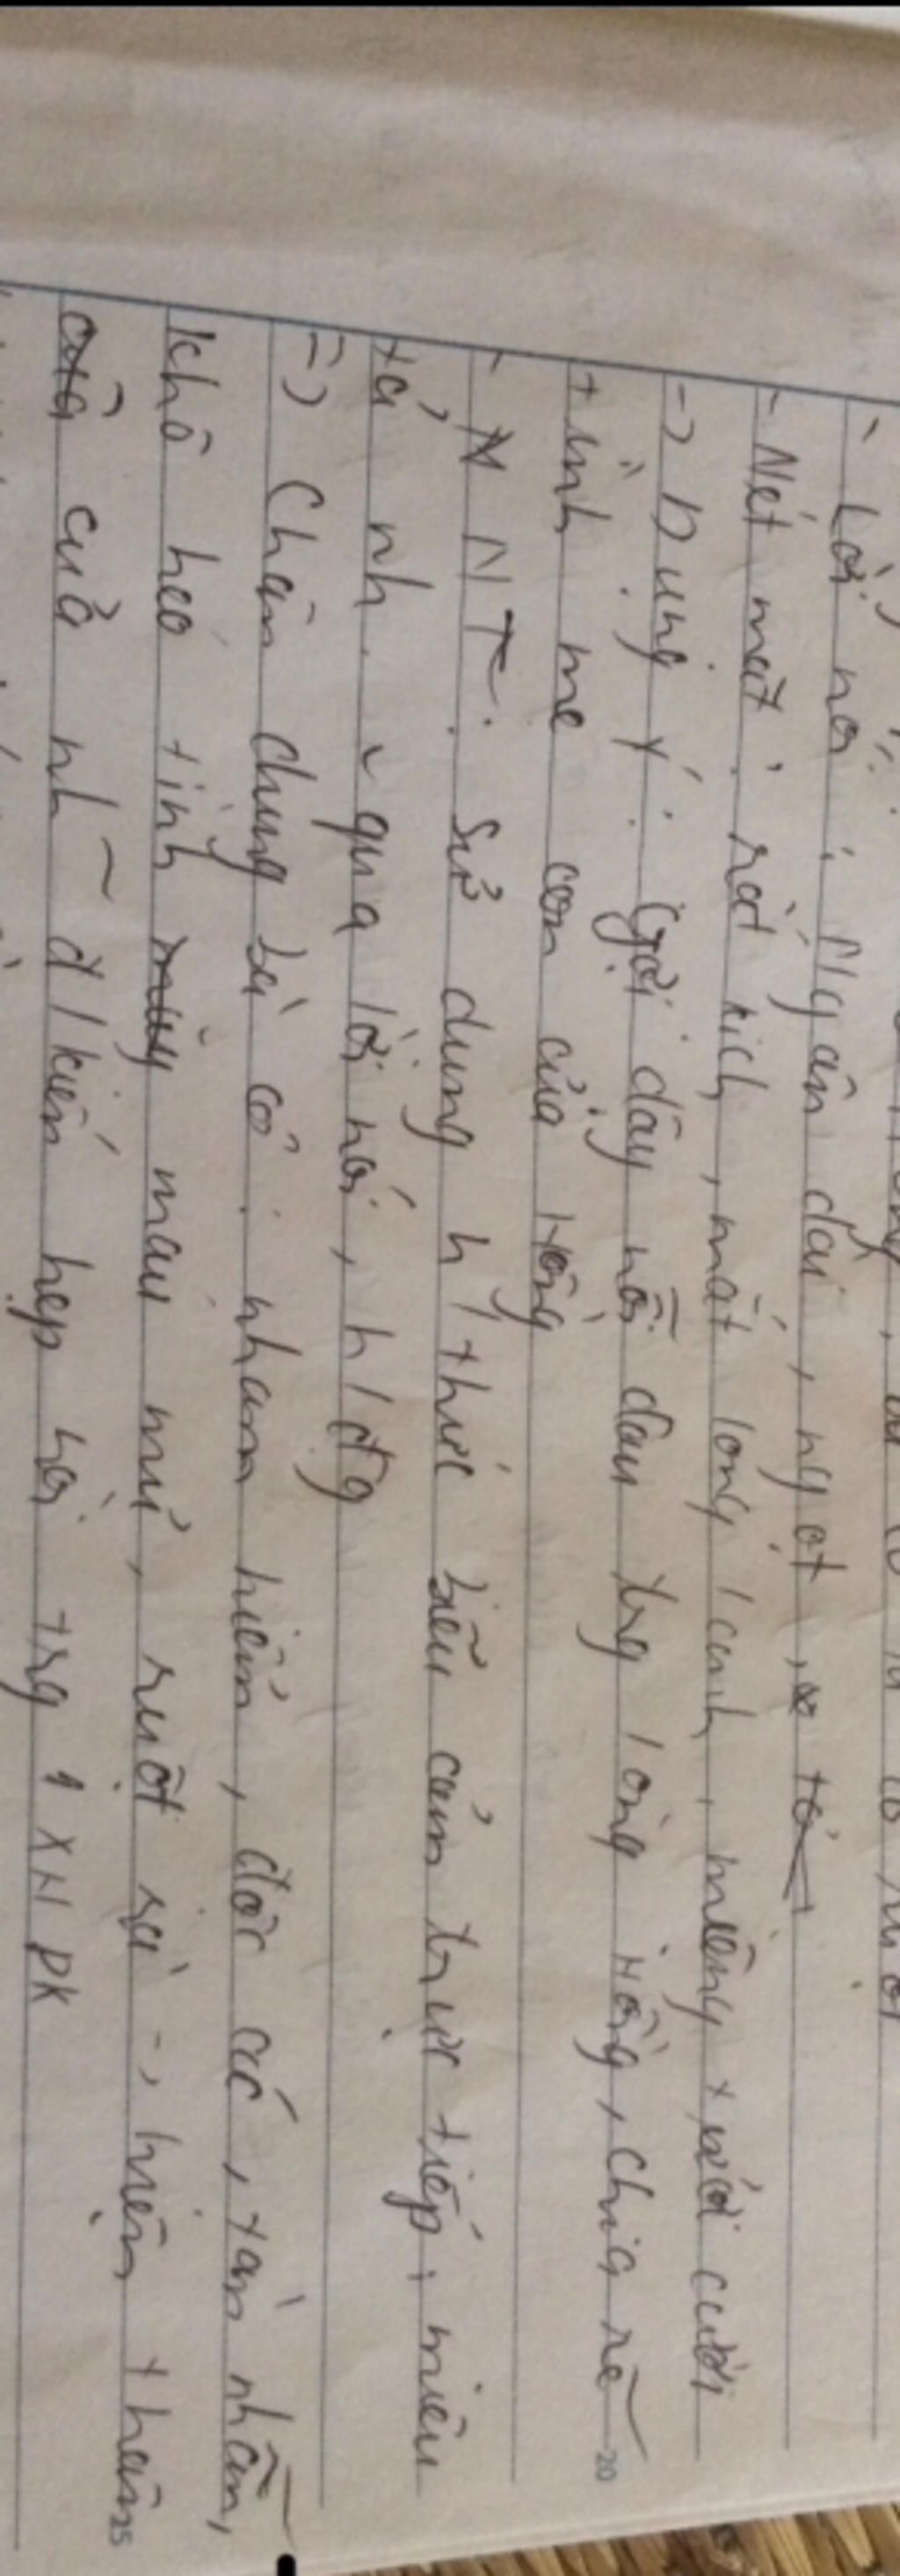 - Lời nói : Ngân dài, ngọt,
- Nét mặt : rất kịch, mắt long lanh, miệng tươi cười
-> Dụng ý : Gợi dậy nỗi đau trg lòng Hồng, chia rẽ
tình mẹ con của Hồng
- NT : Sử dụng h/thức biểu cảm trực tiếp, miêu
tả nh. v qua lời nói, h/đg
=> Chân dung bà cô : nham hiểm, độc ác, tàn nhẫn,
khô héo tình máu mủ, ruột rà -> hiện thân
của nh~ đ/kiến hẹp hòi trg 1 XHPK